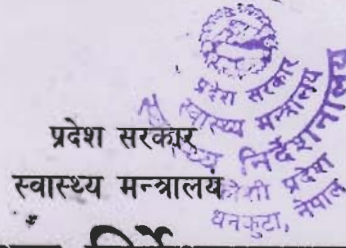 प्रदेश सरकार
स्वास्थ्य मन्त्रालय
प्रदेश सरकार
स्वास्थ्य मन्त्रालय
स्वास्थ्य निर्देशनालय
कोशी प्रदेश
धनकुटा, नेपाल